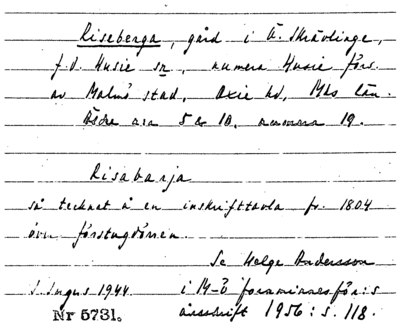 Riseberga, gård i Ö. Skrävlinge,
f.d. Husie sn, numera Husie förs.
av Malmö stad, Oxie hd, Mhs län.
Äldre nra 5 & 10, numera 19.
Risabarja
så tecknat å en inskrifttavla fr. 1804
över förstugdörren.
Se Helge Andersson
i M-Ö fornminnesför:s
årsskrift 1956 : s. 118.
S. Ingers 1944
Nr 5731.